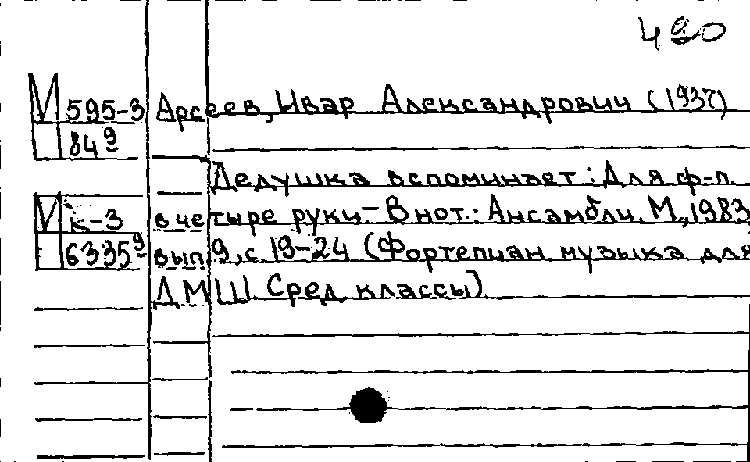 490
М 595-3 Арсеев, Ивар Александрович (1937)
849
Дедушка вспоминает: Для ф-п.
М к-3 в четыре руки.- В нот.: Ансамбли. М., 1983,
63359 вып. 9, с. 19-24 (Фортепиан. музыка для
ДМШ. Сред. классы)